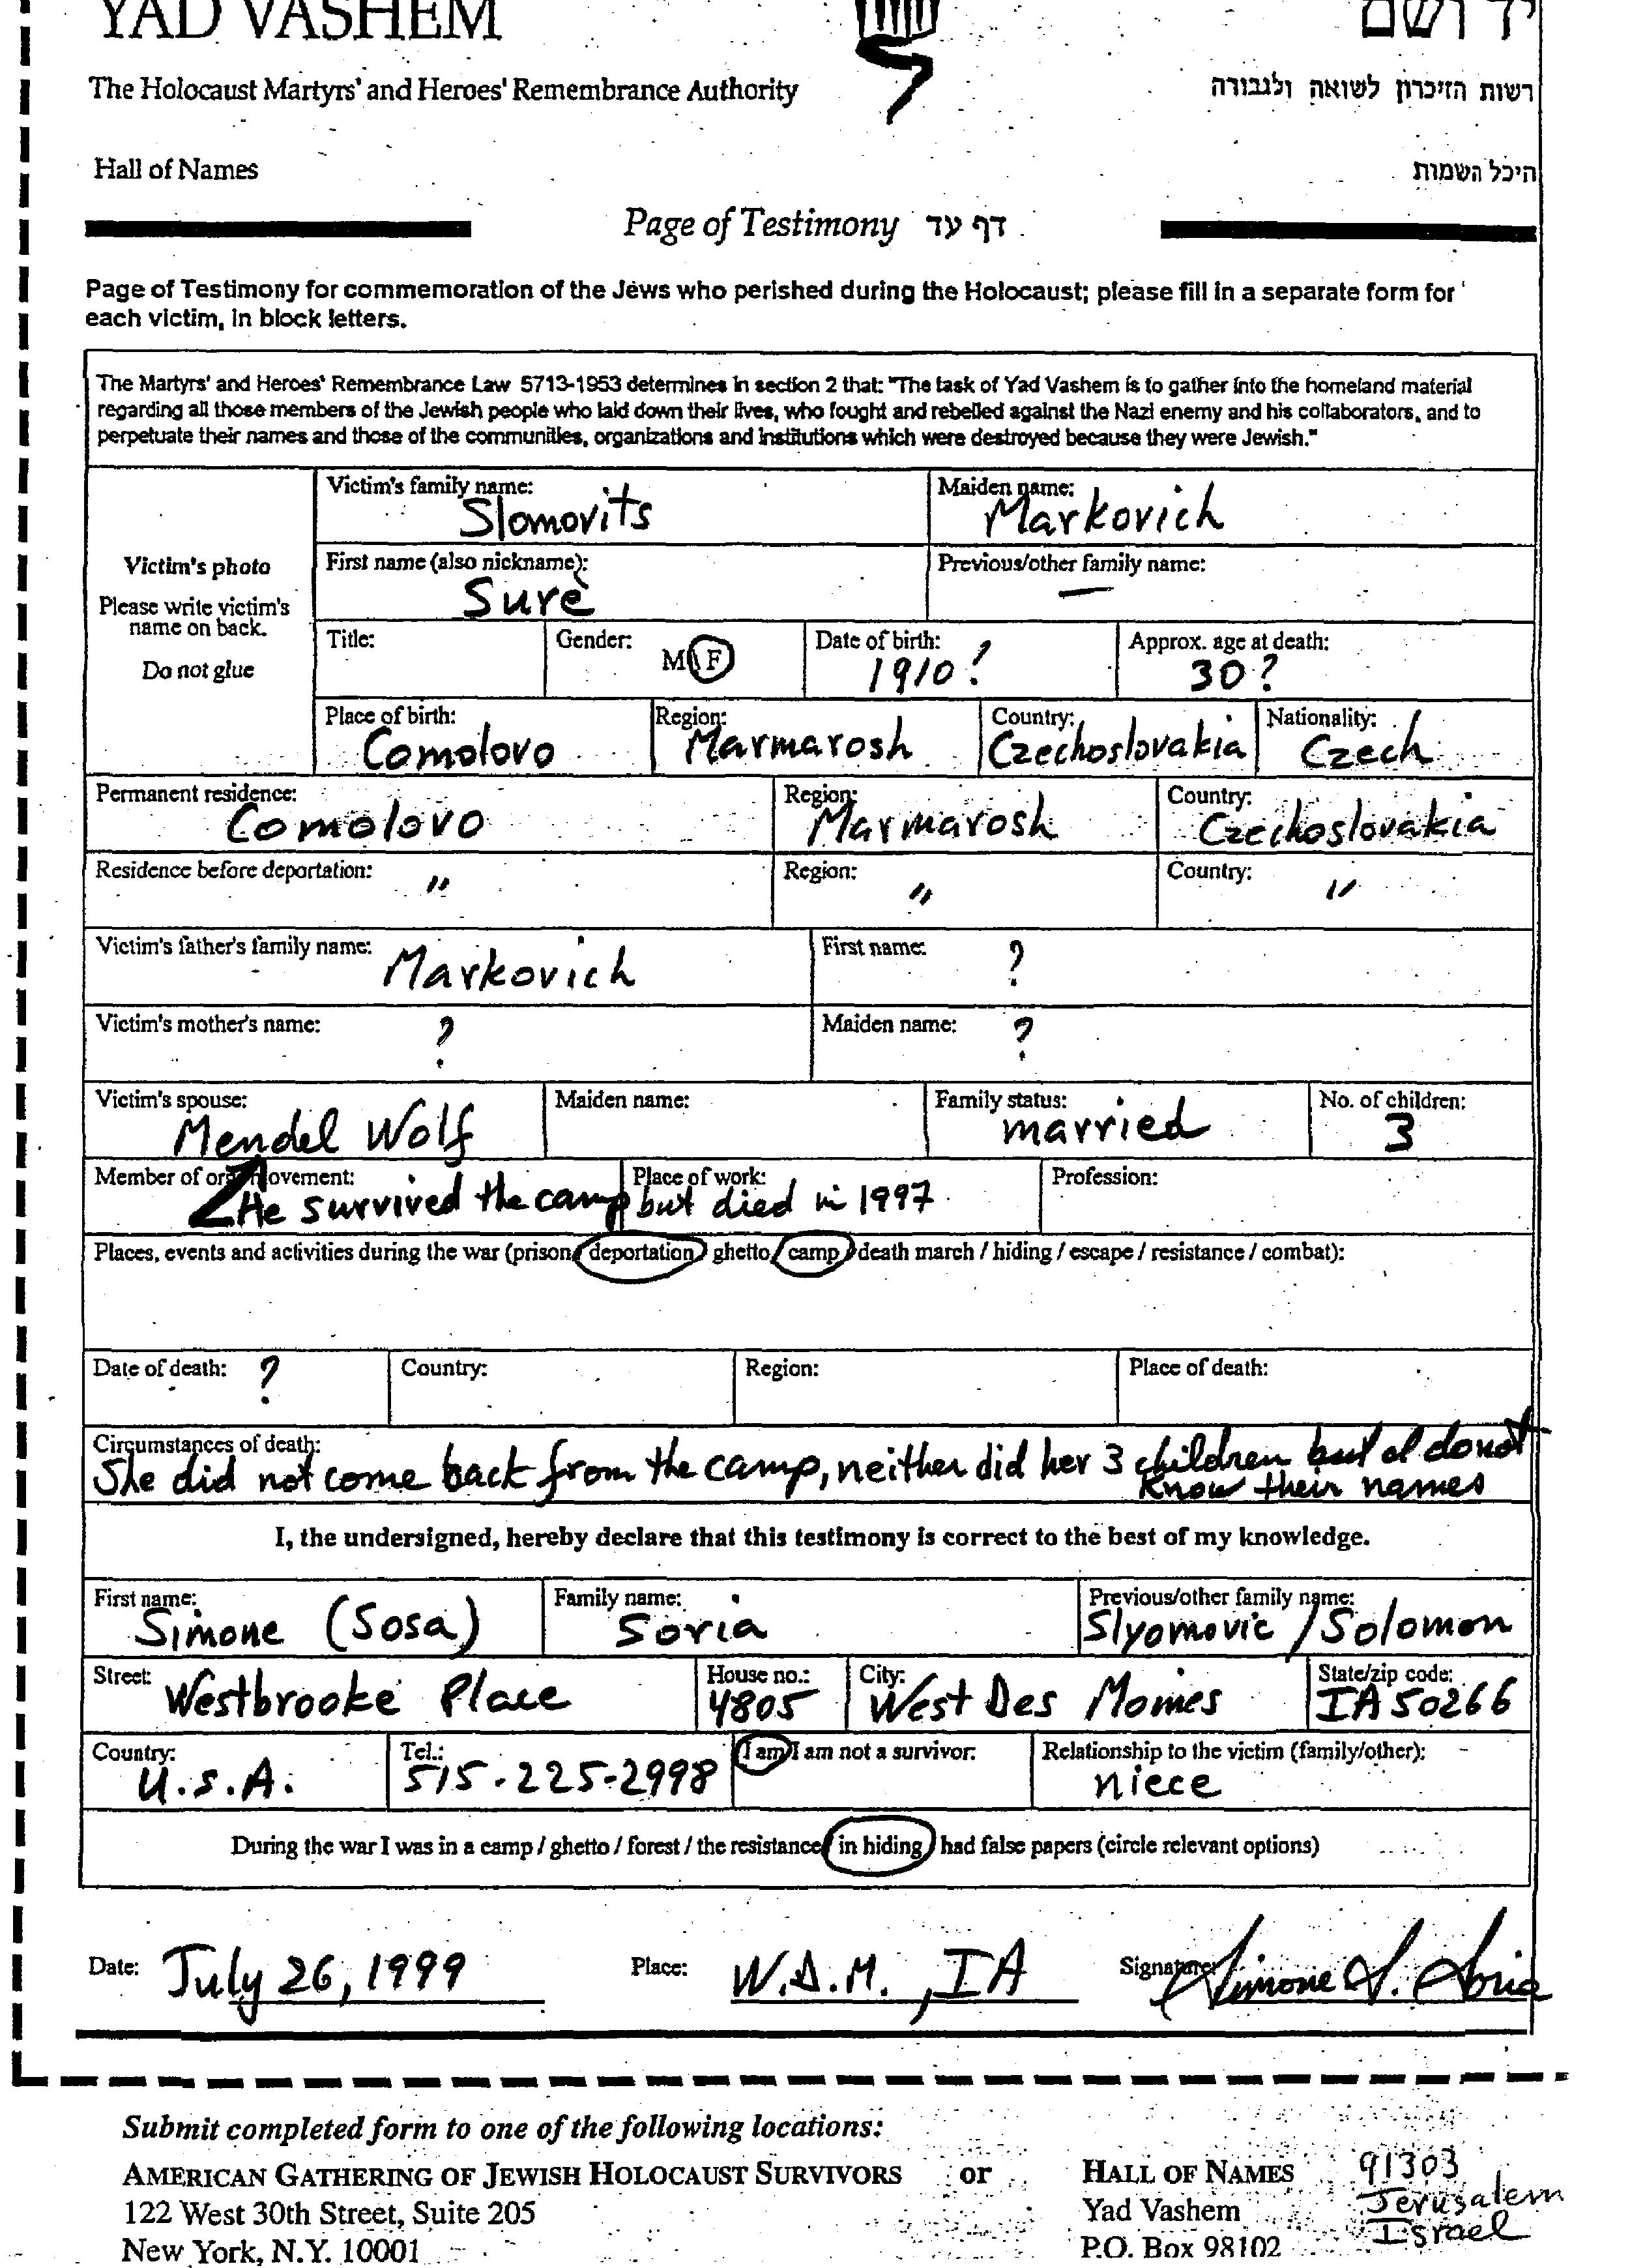 YAD VASHEM יד ושם
The Holocaust Martyrs' and Heroes' Remembrance Authority רשות הזיכרון לשואה ולגבורה
Hall of Names היכל השמות
Page of Testimony דף עד
Page of Testimony for commemoration of the Jews who perished during the Holocaust; please fill in a separate form for
each victim, in block letters.
The Martyrs' and Heroes' Remembrance Law 5713-1953 determines in section 2 that: "The task of Yad Vashem is to gather into the homeland material
regarding all those members of the Jewish people who laid down their lives, who fought and rebelled against the Nazi enemy and his collaborators, and to
perpetuate their names and those of the communities, organizations and institutions which were destroyed because they were Jewish."
Victim's photo
Please write victim's
name on back.
Do not glue
Victim's family name: Maiden name:
Slomovits Markovich
First name (also nickname): Previous/other family name:
Surè —
Title: Gender: M\F Date of birth: Approx. age at death:
1910? 30?
Place of birth: Region: Country: Nationality:
Comolovo Marmarosh Czechoslovakia Czech
Permanent residence: Region: Country:
Comolovo Marmarosh Czechoslovakia
Residence before deportation: " Region: " Country: "
Victim's father's family name: Markovich First name: ?
Victim's mother's name: ? Maiden name: ?
Victim's spouse: Maiden name: Family status: No. of children:
Mendel Wolf married 3
Member of org. Movement: Place of work: Profession:
He survived the camp but died in 1997
Places, events and activities during the war (prison / deportation / ghetto / camp / death march / hiding / escape / resistance / combat):
Date of death: ? Country: Region: Place of death:
Circumstances of death:
She did not come back from the camp, neither did her 3 children but I do not
know their names
I, the undersigned, hereby declare that this testimony is correct to the best of my knowledge.
First name: Family name: Previous/other family name:
Simone (Sosa) Soria Slyomovic / Solomon
Street: House no.: City: State/zip code:
Westbrooke Place 4805 West Des Moines IA 50266
Country: Tel.: I am / I am not a survivor. Relationship to the victim (family/other):
U.S.A. 515-225-2998 niece
During the war I was in a camp / ghetto / forest / the resistance / in hiding / had false papers (circle relevant options)
Date: July 26, 1999 Place: W.D.M., IA Signature: Simone S. Soria
Submit completed form to one of the following locations:
AMERICAN GATHERING OF JEWISH HOLOCAUST SURVIVORS or HALL OF NAMES 91303
122 West 30th Street, Suite 205 Yad Vashem Jerusalem
New York, N.Y. 10001 P.O. Box 98102 Israel